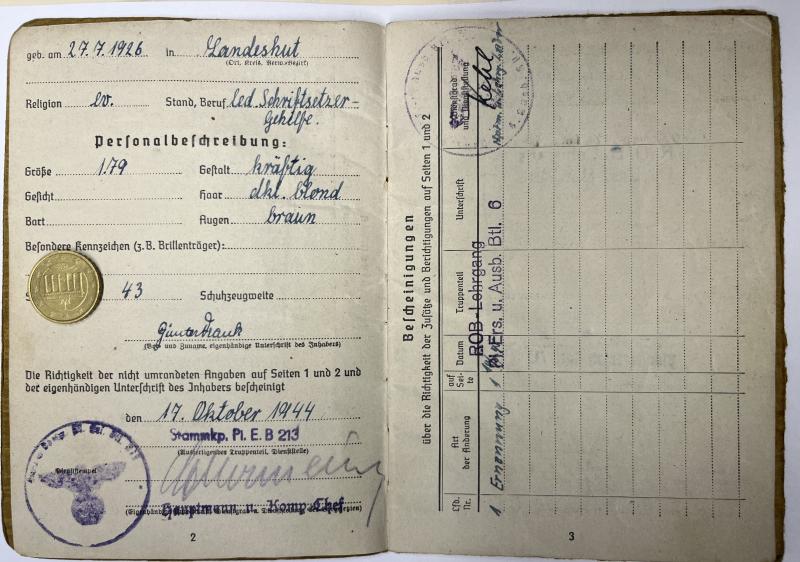 geb. am 27.7.1926 in Landeshut
(Ort, Kreis, Verw.-Bezirk)
Religion ev. Stand, Beruf led. Schriftsetzer-
Gehilfe.
Personalbeschreibung:
Größe 1.79 Gestalt kräftig
Gesicht Haar dkl. blond
Bart Augen braun
Besondere Kennzeichen (z. B. Brillenträger):
43 Schuhzeugweite
Günter
(Vor- und Zuname, eigenhändige Unterschrift des Inhabers)
Die Richtigkeit der nicht umrandeten Angaben auf Seiten 1 und 2 und
der eigenhändigen Unterschrift des Inhabers bescheinigt
den 17. Oktober 1944
Stammkp. Pi. E. B 213
(Ausfertigender Truppenteil, Dienststelle)
Dienststempel
Hauptmann u. Komp.-Chef
2
Bescheinigungen
über die Richtigkeit der Zusätze und Berichtigungen auf Seiten 1 und 2
Lfd. Nr.
Art der Änderung
auf Sei-te
Datum
Truppenteil
Unterschrift
Dienstgrad und Dienststellung
1 Ernennung 1
ROB-Lehrgang
Ers. u. Ausb. Btl. 6
3